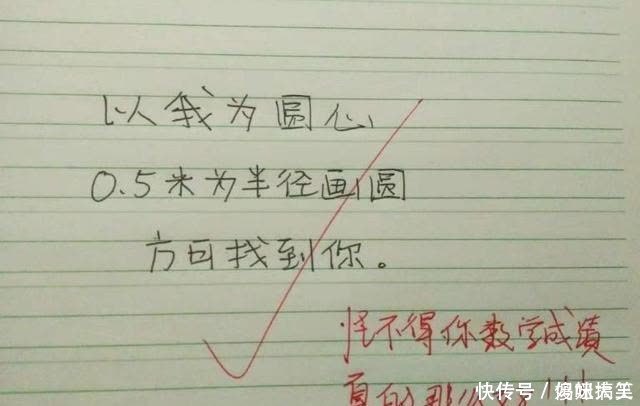 以我为圆心
0.5米为半径画圆
方可找到你。
怪不得你数学成绩
真的那么
快传号/媳妇搞笑